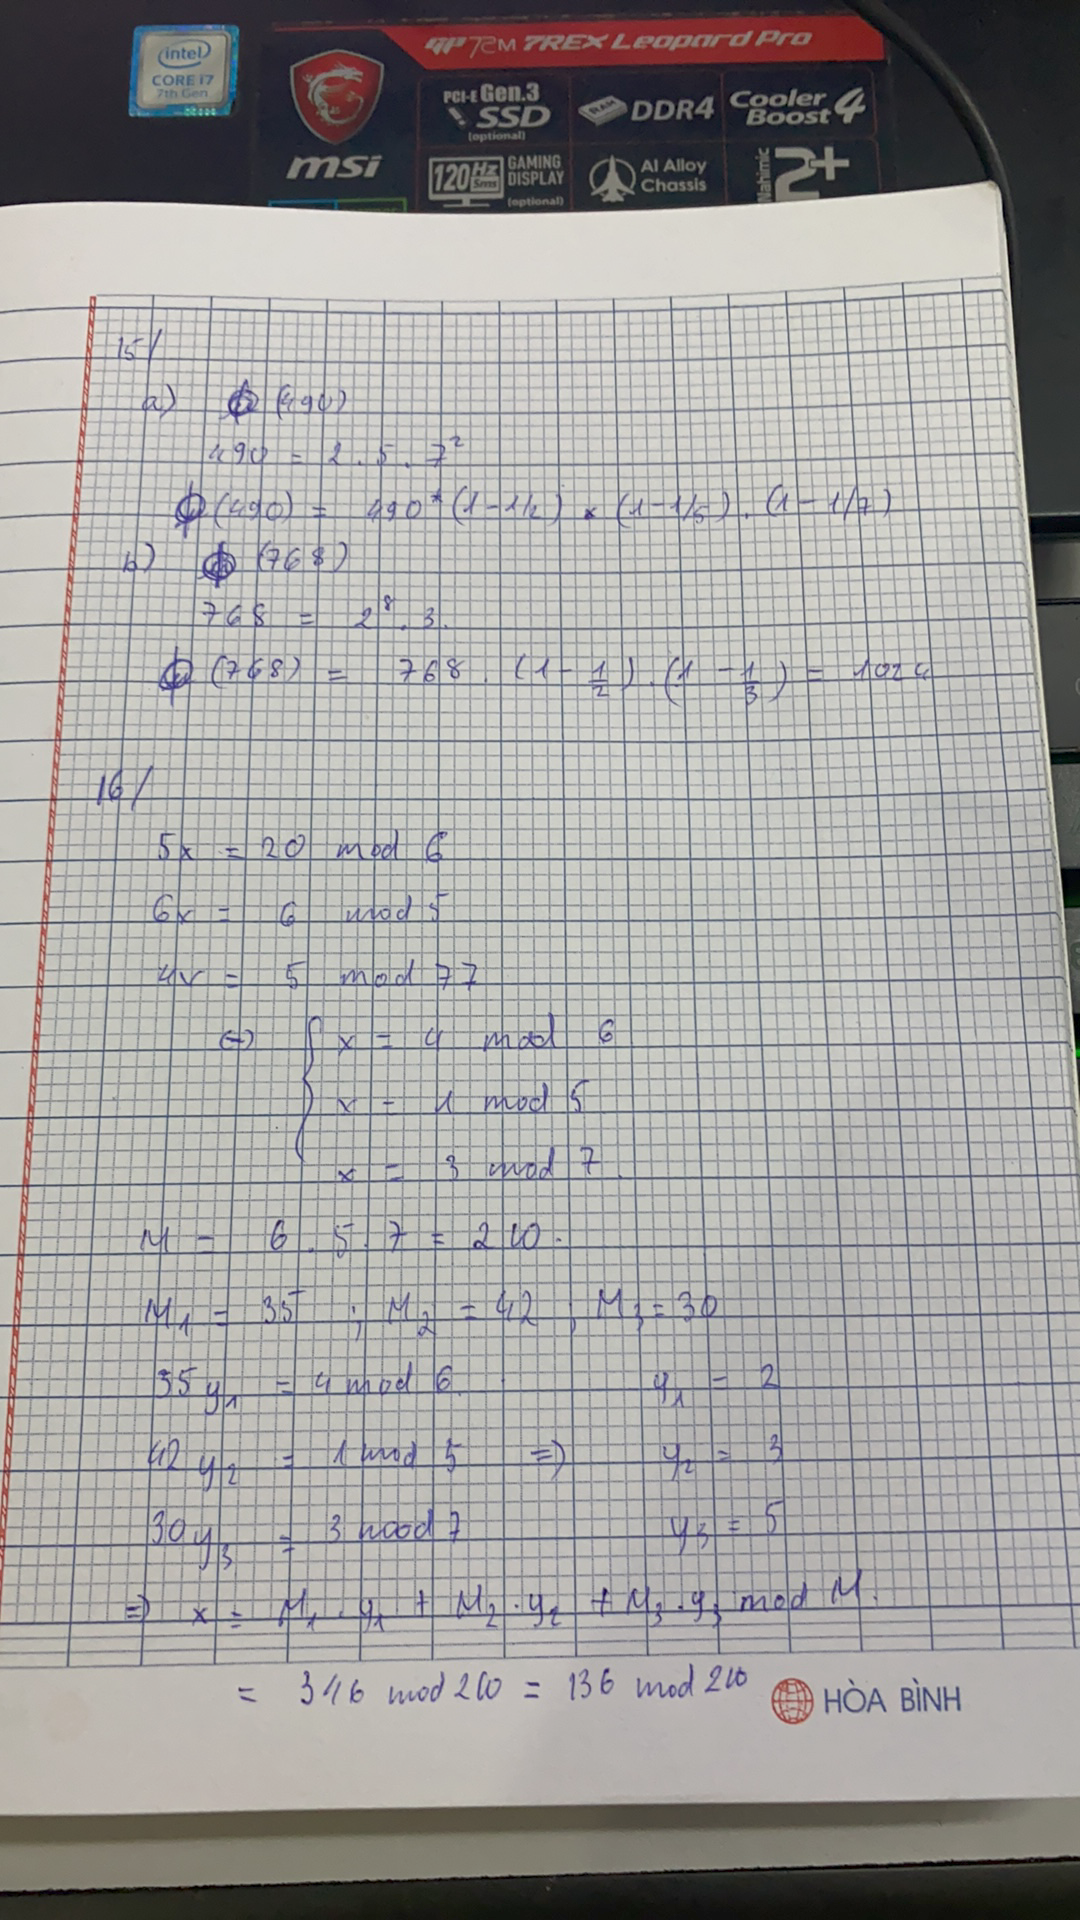 intel
CORE i7
7th Gen
GP72M 7REX Leopard Pro
msi
PCI-E Gen.3
SSD
(optional)
DDR4
Cooler
Boost 4
120Hz
5ms
GAMING
DISPLAY
(optional)
Al Alloy
Chassis
Nahimic
2+
15/
a) ϕ (490)
490 = 2 . 5 . 7²
ϕ (490) = 490 * (1 - 1/2) * (1 - 1/5) . (1 - 1/7)
b) ϕ (768)
768 = 2⁸ . 3.
ϕ (768) = 768 . (1 - 1/2) . (1 - 1/3) = 1024
16/
5x = 20 mod 6
6x = 6 mod 5
4x = 5 mod 77
⇔ { x = 4 mod 6
x = 1 mod 5
x = 3 mod 7.
M = 6 . 5 . 7 = 210.
M₁ = 35 ; M₂ = 42 , M₃ = 30
35 y₁ = 4 mod 6. y₁ = 2
42 y₂ = 1 mod 5 ⇒ y₂ = 3
30 y₃ = 3 mod 7 y₃ = 5
⇒ x = M₁ . y₁ + M₂ . y₂ + M₃ . y₃ mod M.
= 346 mod 210 = 136 mod 210
HÒA BÌNH